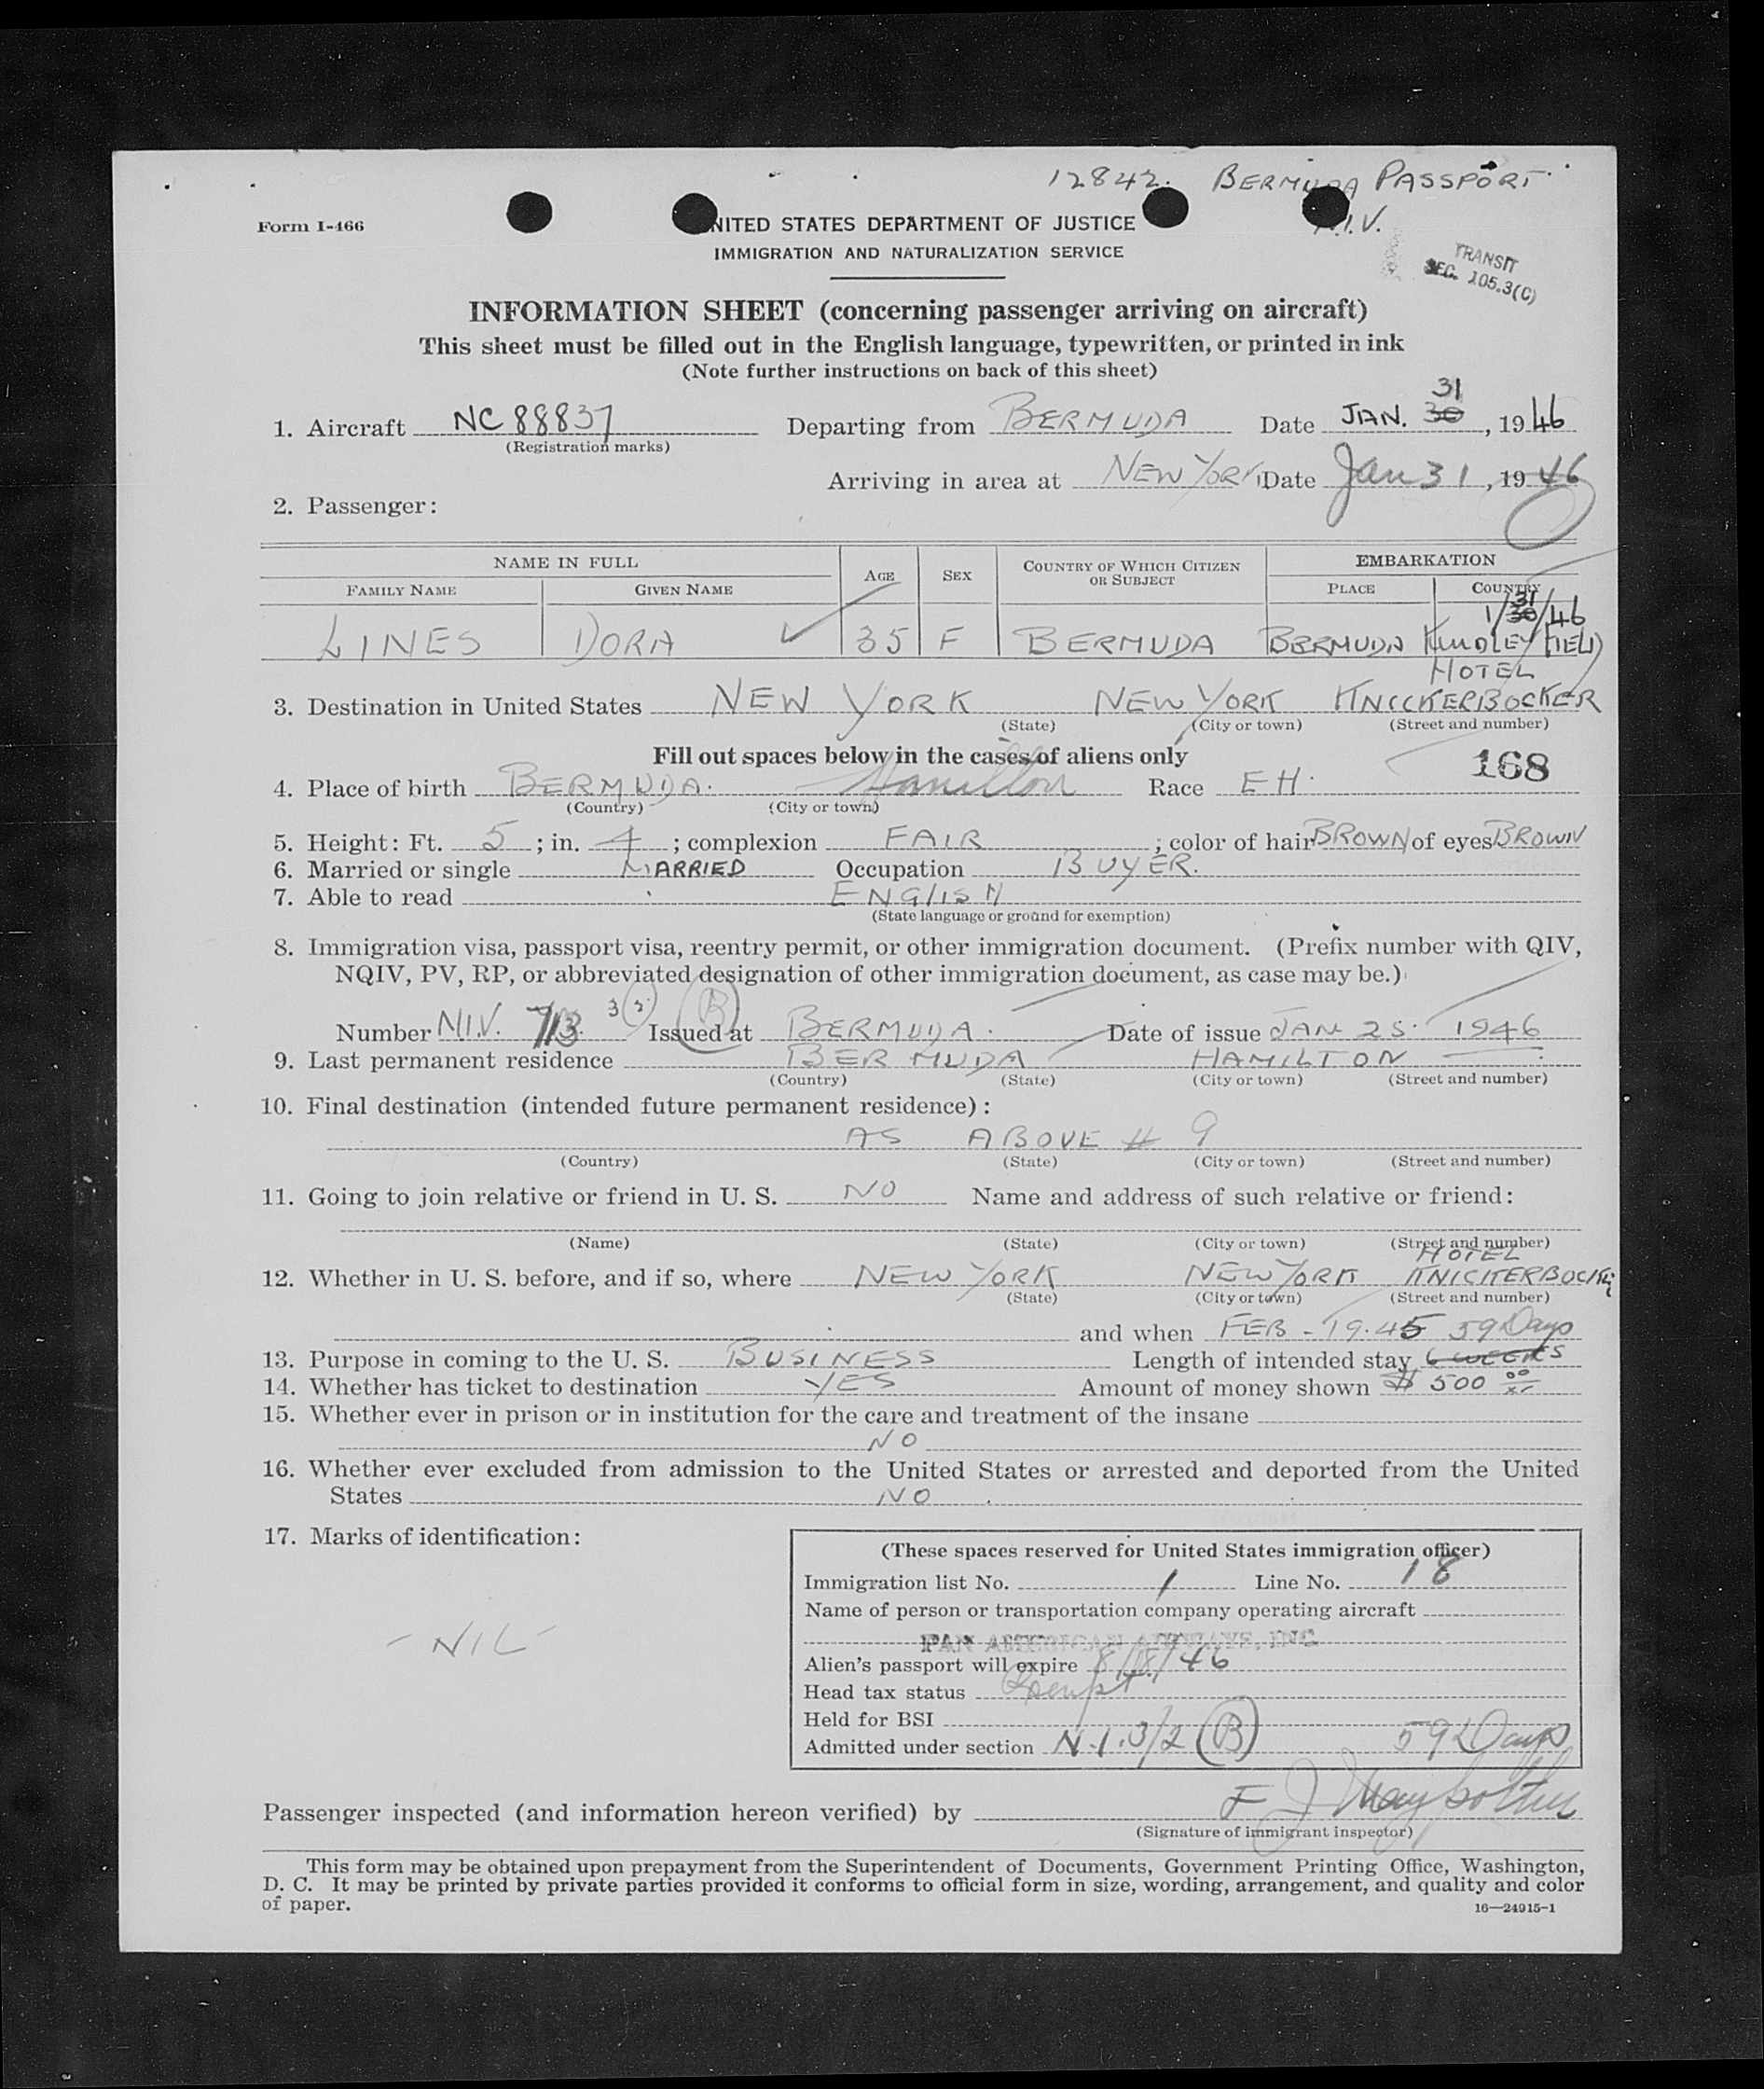 12842. BERMUDA PASSPORT
Form I-466
UNITED STATES DEPARTMENT OF JUSTICE
.I.V.
IMMIGRATION AND NATURALIZATION SERVICE
TRANSIT
SEC. 105.3(C)
INFORMATION SHEET (concerning passenger arriving on aircraft)
This sheet must be filled out in the English language, typewritten, or printed in ink
(Note further instructions on back of this sheet)
31
1. Aircraft NC 88837 Departing from BERMUDA Date JAN. 30, 1946
(Registration marks)
Arriving in area at NEW YORK Date Jan 31, 1946
2. Passenger:
NAME IN FULL AGE SEX COUNTRY OF WHICH CITIZEN OR SUBJECT EMBARKATION
FAMILY NAME GIVEN NAME PLACE COUNTRY
31
1/30/46
LINES DORA ✓ 35 F BERMUDA BERMUDA KINDLEY FIELD
HOTEL
3. Destination in United States NEW YORK NEW YORK KNICKERBOCKER
(State) (City or town) (Street and number)
Fill out spaces below in the cases of aliens only
168
4. Place of birth BERMUDA. Hamilton Race EH.
(Country) (City or town)
5. Height: Ft. 5; in. 4; complexion FAIR; color of hair BROWN of eyes BROWN
6. Married or single MARRIED Occupation BUYER.
7. Able to read ENGLISH
(State language or ground for exemption)
8. Immigration visa, passport visa, reentry permit, or other immigration document. (Prefix number with QIV,
NQIV, PV, RP, or abbreviated designation of other immigration document, as case may be.)
Number N.I.V. 713 3(2) (B) Issued at BERMUDA. Date of issue JAN 25. 1946
9. Last permanent residence BERMUDA HAMILTON
(Country) (State) (City or town) (Street and number)
10. Final destination (intended future permanent residence):
AS ABOVE # 9
(Country) (State) (City or town) (Street and number)
11. Going to join relative or friend in U. S. NO Name and address of such relative or friend:
(Name) (State) (City or town) (Street and number)
HOTEL
12. Whether in U. S. before, and if so, where NEW YORK NEW YORK KNICKERBOCKER
(State) (City or town) (Street and number)
and when FEB - 19.45 59 Days
13. Purpose in coming to the U. S. BUSINESS Length of intended stay 6 WEEKS
14. Whether has ticket to destination YES Amount of money shown $ 500 00/xx
15. Whether ever in prison or in institution for the care and treatment of the insane
NO
16. Whether ever excluded from admission to the United States or arrested and deported from the United
States NO
17. Marks of identification:
- NIL -
(These spaces reserved for United States immigration officer)
Immigration list No. 1 Line No. 18
Name of person or transportation company operating aircraft
PAN AMERICAN AIRWAYS, INC.
Alien's passport will expire 8/18/46
Head tax status Exempt
Held for BSI
Admitted under section N.I.3/2 (B) 59 Days
Passenger inspected (and information hereon verified) by F J
(Signature of immigrant inspector)
This form may be obtained upon prepayment from the Superintendent of Documents, Government Printing Office, Washington,
D. C. It may be printed by private parties provided it conforms to official form in size, wording, arrangement, and quality and color
of paper.
16—24915-1